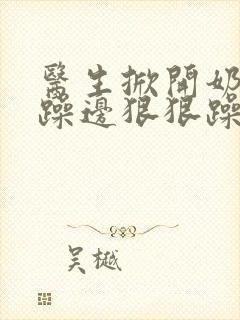 醫生掀開奶
躁邊狠狠躁
吴樾